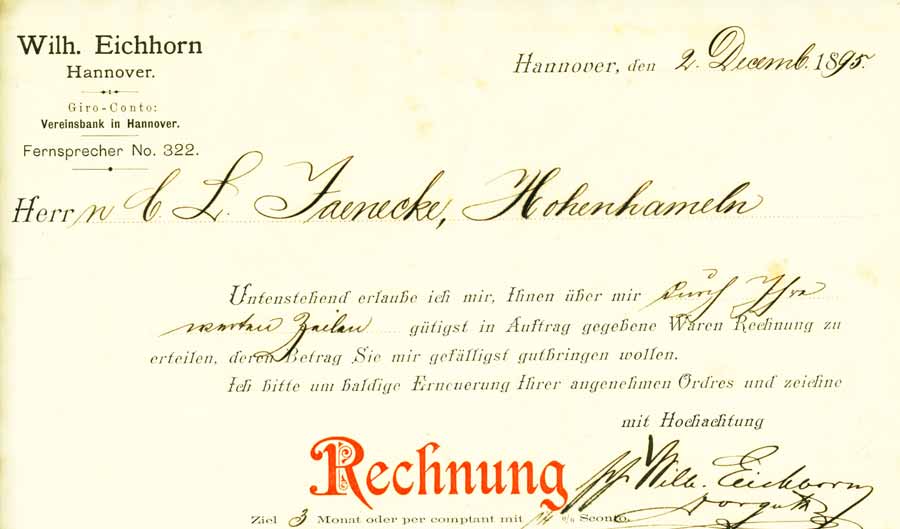 Wilh. Eichhorn
Hannover.
Giro-Conto:
Vereinsbank in Hannover.
Fernsprecher No. 322.
Hannover, den 2. Decemb. 1895.
Herrn C. L. Jaenecke, Hohenhameln
Untenstehend erlaube ich mir, Ihnen über mir durch Ihre
werten Zeilen gütigst in Auftrag gegebene Waren Rechnung zu
erteilen, deren Betrag Sie mir gefälligst gutbringen wollen.
Ich bitte um baldige Erneuerung Ihrer angenehmen Ordres und zeichne
mit Hochachtung
Rechnung
Wilh. Eichhorn
Ziel 3 Monat oder per comptant mit % Sconto.